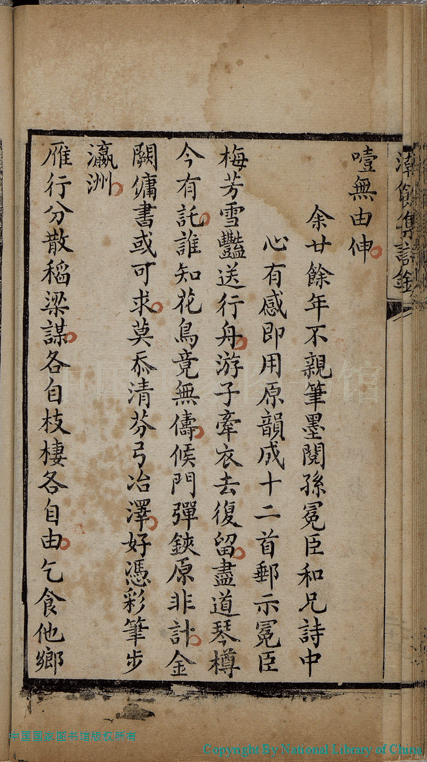 集詩鈔
噎無由伸
余廿餘年不親筆墨閱孫冕臣和兄詩中
心有感即用原韻成十二首郵示冕臣
梅芳雪豔送行舟游子牽衣去復留盡道琴樽
今有託誰知花鳥竟無儔候門彈鋏原非計金
闕傭書或可求莫忝清芬弓冶澤好憑彩筆步
瀛洲
雁行分散稻梁謀各自枝棲各自由乞食他鄉
中国国家图书馆版权所有
Copyright By National Library of China